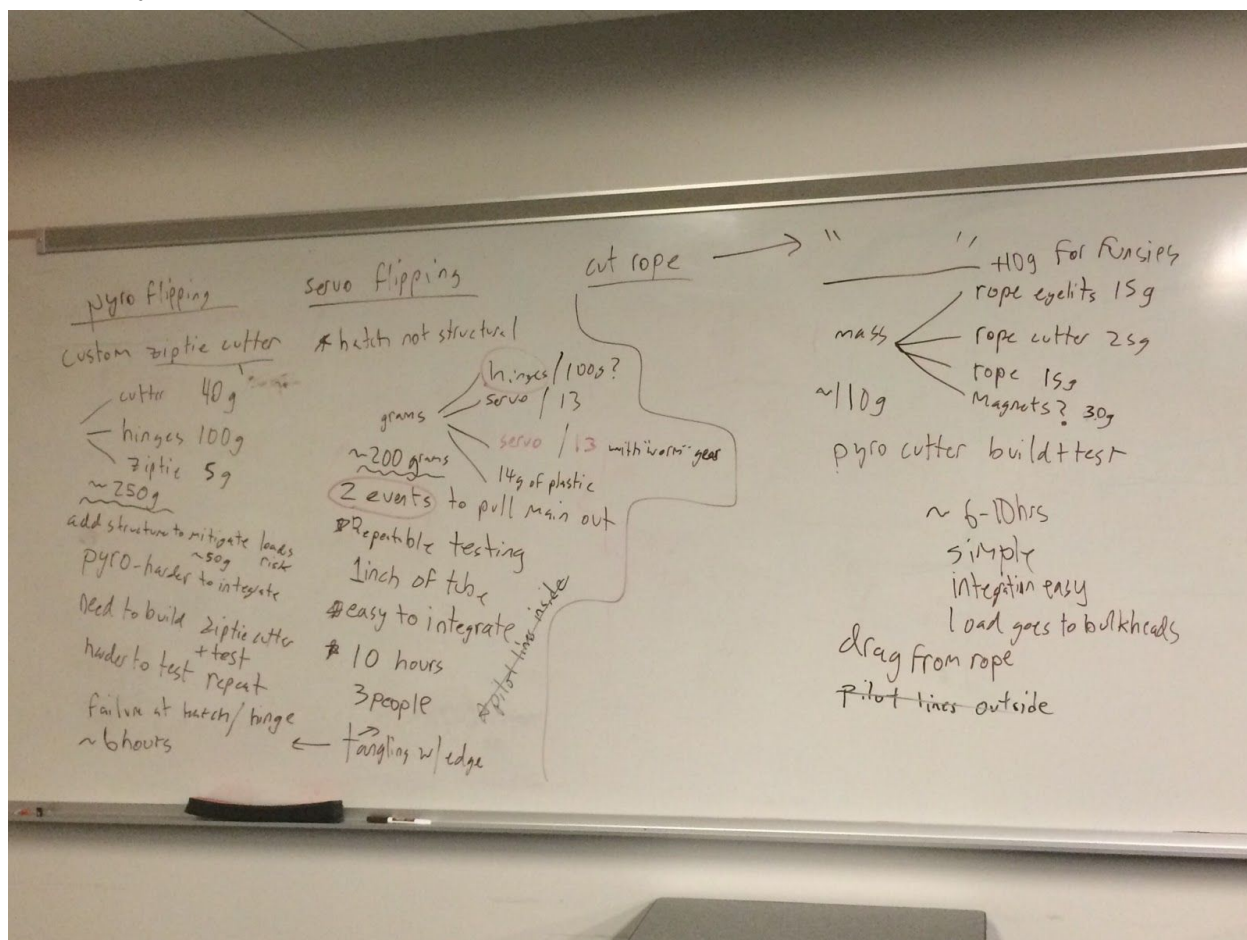 pyro flipping
custom ziptie cutter
cutter 40g
hinges 100g
ziptie 5g
~250g
add structure to mitigate loads
~50g risk
pyro-harder to integrate
need to build ziptie cutter
+ test
harder to test repeat
failure at hatch/hinge
~6hours
servo flipping
* hatch not structural
grams
hinges/100g?
servo / 13
servo / 13 with "worm" gear
14g of plastic
~200 grams
2 events to pull main out
* Repeatible testing
1inch of tube
* easy to integrate
* 10 hours
3people
← tangling w/edge
* pilot lines inside
cut rope →
" "
+10g for funsies
mass
rope eyelits 15g
rope cutter 25g
rope 15g
Magnets? 30g
~110g
pyro cutter build+test
~ 6-10hrs
simple
integration easy
load goes to bulkheads
drag from rope
pilot lines outside